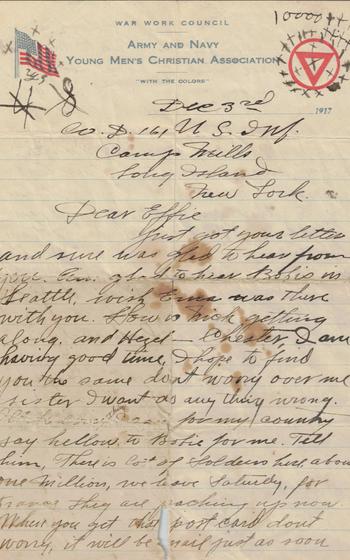 10000
WAR WORK COUNCIL
ARMY AND NAVY
YOUNG MEN'S CHRISTIAN ASSOCIATION
"WITH THE COLORS"
Dec 3rd 1917
Co. D. 161 U.S. Inf.
Camp Mills
Long Island
New York.
Dear Effie
Just got your letter
and sure was glad to hear from
you. Am glad to hear Bobie is
Seattle, wish was there
with you. How is getting
along. and Hazel Chester, I am
having good time, I hope to find
you the same dont worry over me
sister I want do any thing wrong.
for my country
say hellow to Bobie for me. Tell
him, There is lost of Soldiers here, about
one Million, we leave Saturdy, for
they are up now.
When you get that post card dont
worry, it will be mail just as soon